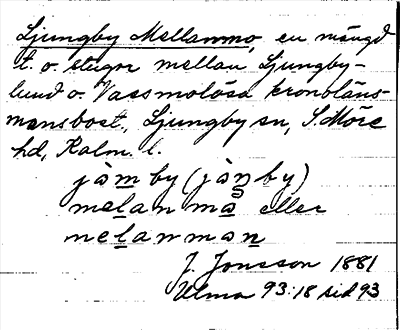 Ljungby Mellanmo, en mängd
t. o. stugor mellan Ljungby-
lund o. Vassmolösa kronoläns-
mansbost., Ljungby sn, S. Möre
hd, Kalm. l.
jàm by (jàn by)
melan må eller
melanman
J. Jonsson 1881
Ulma 93:18 sid 93